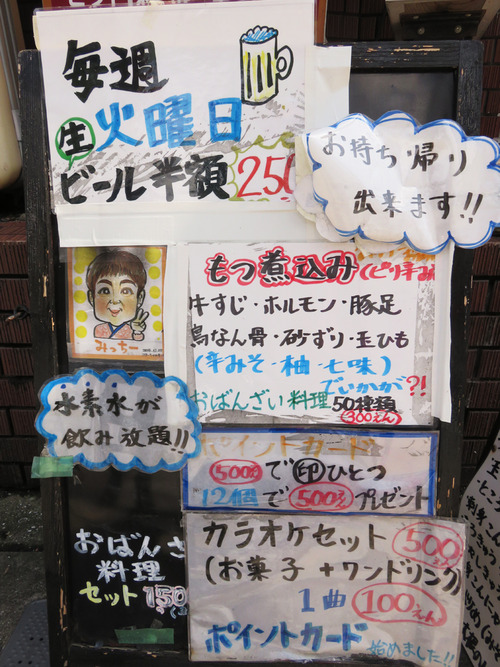 毎週
火曜日
生ビール半額 250
お持ち帰り
出来ます!!
もつ煮込み(ピリ辛み
牛すじ・ホルモン・豚足
鳥なん骨・砂ずり・玉ひも
(辛みそ・柚・七味)
でいかが?!
おばんざい料理 50種類
(300えん)
みっちー
水素水が
飲み放題!!
ポイントカード
500円で印ひとつ
12個で500えんプレゼント
おばんざ
料理
セット 150
カラオケセット 500えん
(お菓子+ワンドリンク)
1曲 100えん
ポイントカード 始めました!!